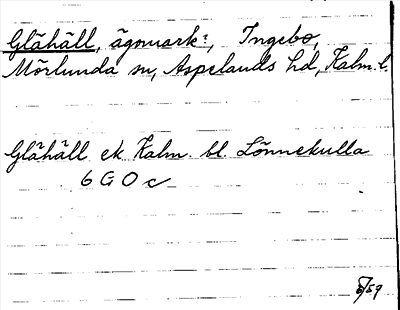 Glähäll, ägomark:, Ingebo,
Mörlunda sn, Aspelands hd, Kalm. l.
Glähäll ek Kalm. bl. Lönnekulla
6 G O c
6/59